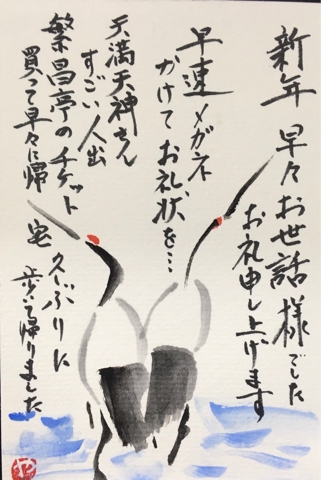 新年 早々お世話様でした
お礼申し上げます
早速メガネ
かけてお礼状を…
天満天神さん
すごい人出
繁昌亭のチケット
買って早々に帰宅
久しぶりに
歩いて帰りました